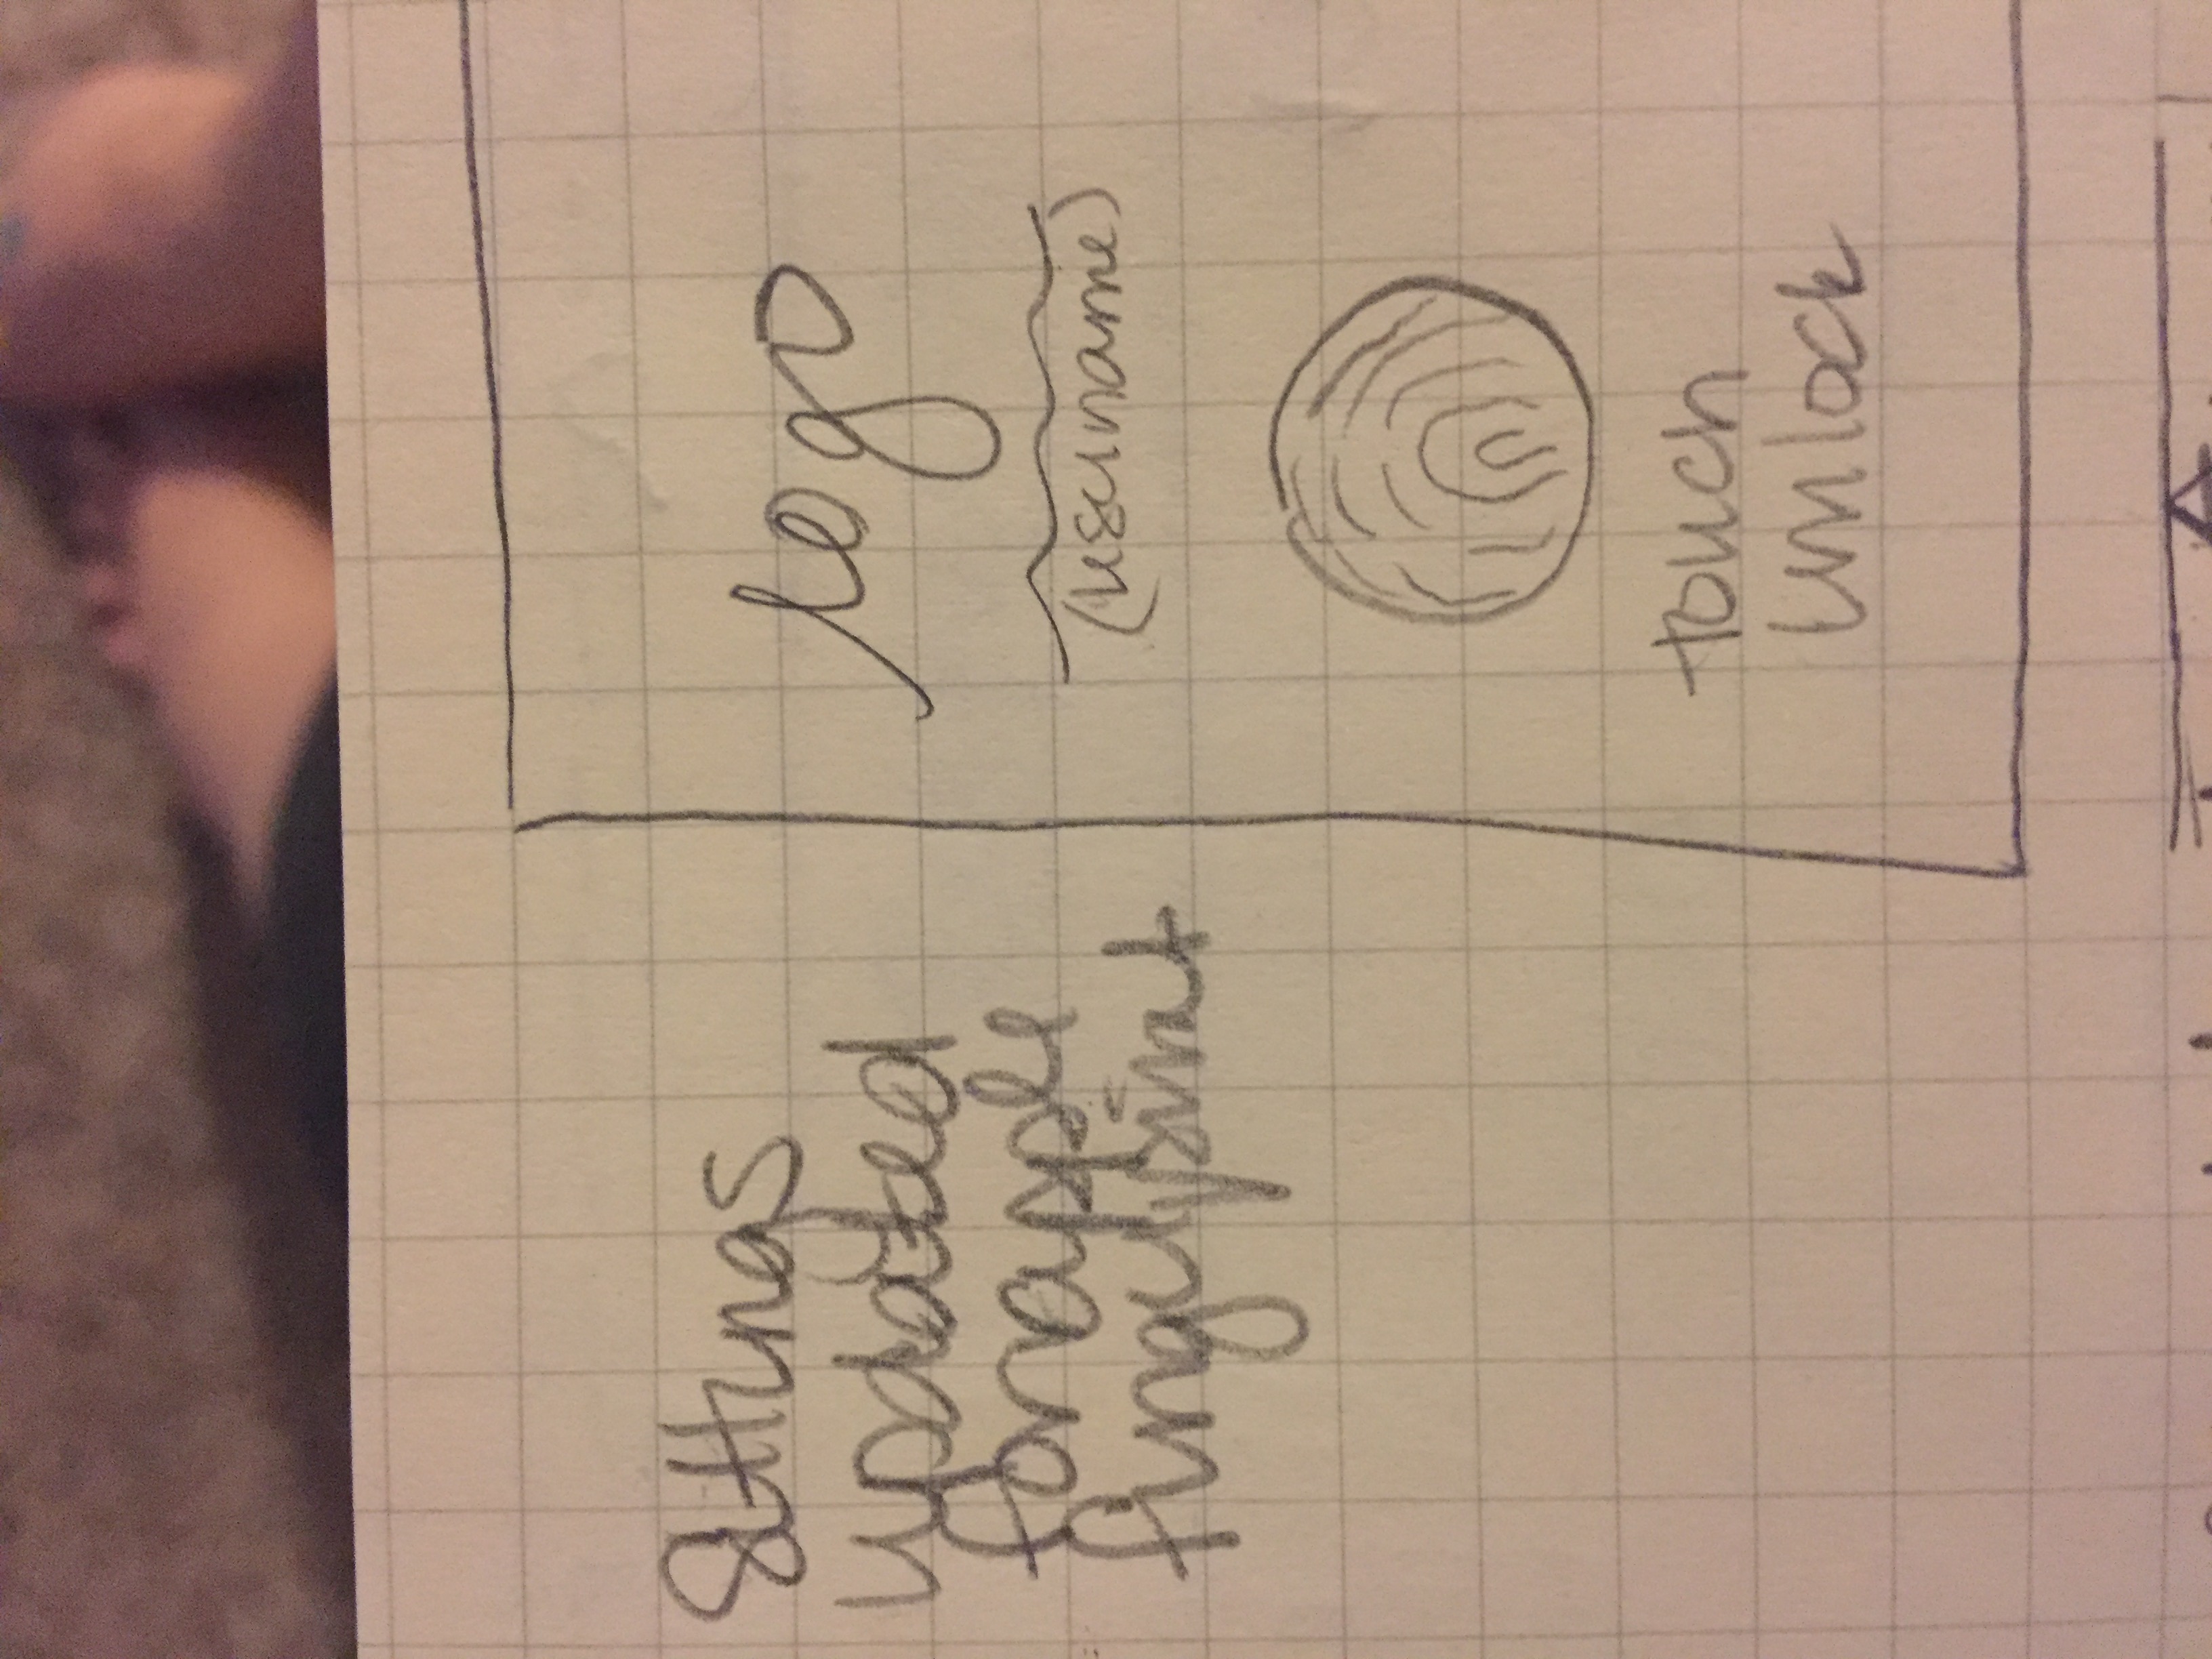 Settings
updated
for apple
fingerprint
logo
(username)
touch
unlock